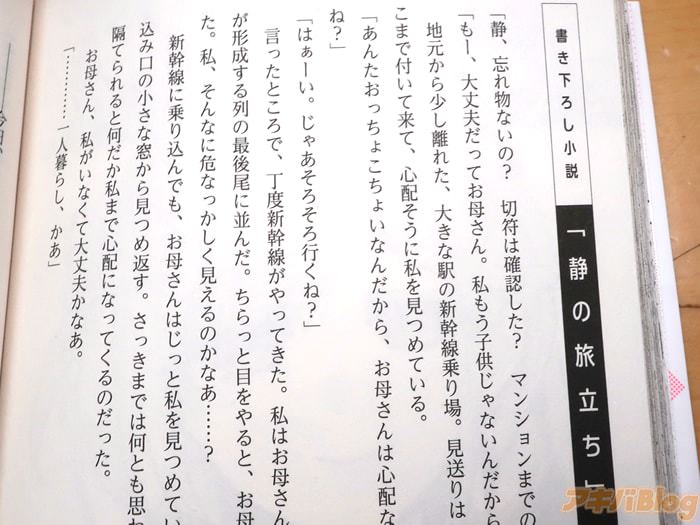 書き下ろし小説
「静の旅立ち」
「静、忘れ物ないの？　切符は確認した？　マンションまでの
「もー、大丈夫だってお母さん。私もう子供じゃないんだから
　地元から少し離れた、大きな駅の新幹線乗り場。見送りは
こまで付いて来て、心配そうに私を見つめている。
「あんたおっちょこちょいなんだから、お母さんは心配な
ね？」
「はぁーい。じゃあそろそろ行くね？」
　言ったところで、丁度新幹線がやってきた。私はお母さん
が形成する列の最後尾に並んだ。ちらっと目をやると、お母
た。私、そんなに危なっかしく見えるのかなあ……？
　新幹線に乗り込んでも、お母さんはじっと私を見つめてい
込み口の小さな窓から見つめ返す。さっきまでは何とも思わ
隔てられると何だか私まで心配になってくるのだった。
　お母さん、私がいなくて大丈夫かなあ。
「…………一人暮らし、かあ」
アキバBlog